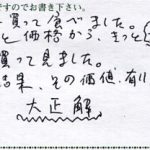 ですのでお書き下さい。
買って食べました。
と価格から、きっと
買って見ました。
結果、その価値、有り
大正解